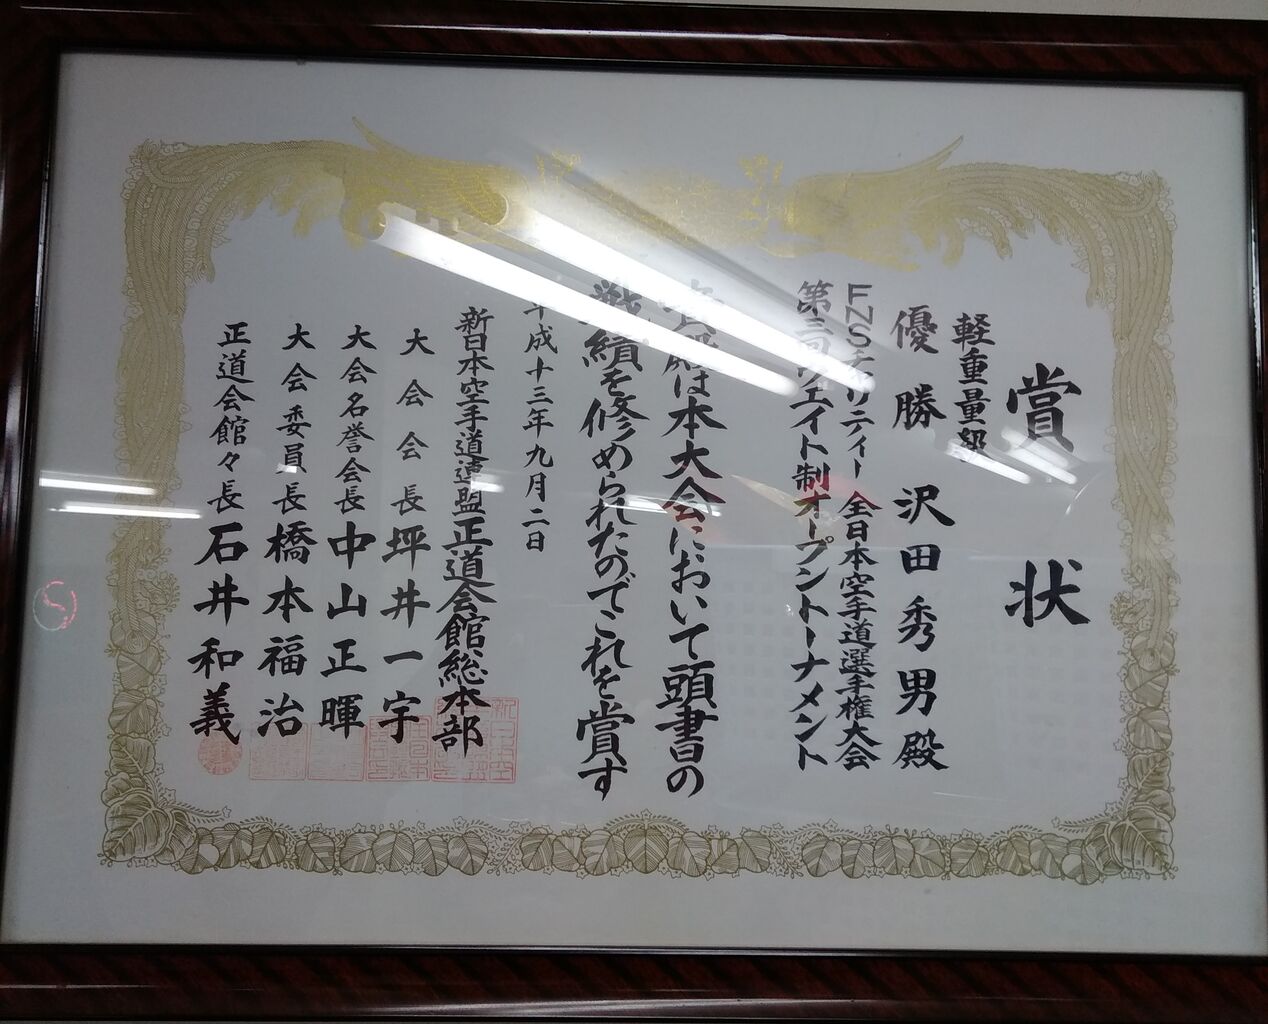 賞状
軽重量級
優勝 沢田秀男殿
FNSチャリティー 全日本空手道選手権大会
第三回ウエイト制オープントーナメント
貴殿は本大会において頭書の
戦績を修められたのでこれを賞す
平成十三年九月二日
新日本空手道連盟正道会館総本部
大会会長 坪井一宇
大会名誉会長 中山正暉
大会委員長 橋本福治
正道会館々長 石井和義